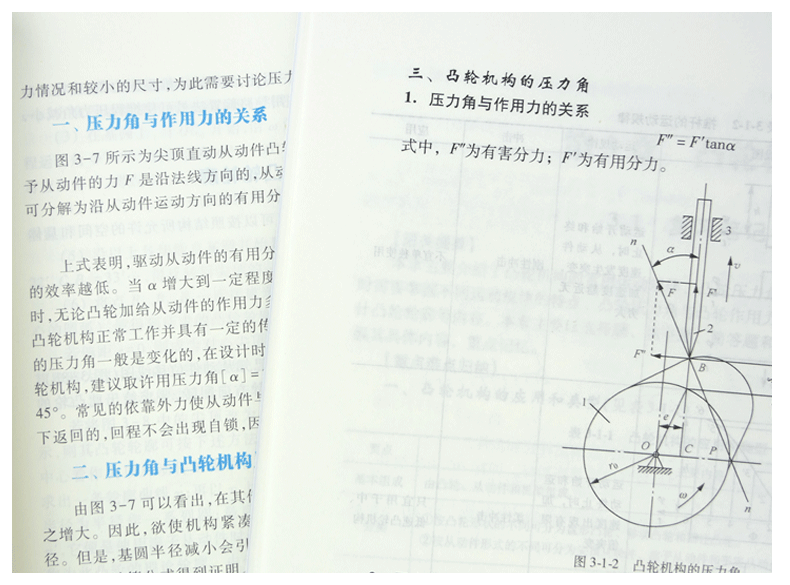 力情况和较小的尺寸,为此需要讨论压力
一、压力角与作用力的关系
图 3-7 所示为尖顶直动从动件凸
予从动件的力 F 是沿法线方向的,从动
可分解为沿从动件运动方向的有用分
上式表明,驱动从动件的有用分
的效率越低。当 α 增大到一定程度
时,无论凸轮加给从动件的作用力
凸轮机构正常工作并具有一定的传
的压力角一般是变化的,在设计时
轮机构,建议取许用压力角[α]=
45°。常见的依靠外力使从动件与
下返回的,回程不会出现自锁,因
二、压力角与凸轮机构
由图 3-7 可以看出,在其他
之增大。因此,欲使机构紧凑
径。但是,基圆半径减小会引
得到证明
三、凸轮机构的压力角
1. 压力角与作用力的关系
F″= F′tanα
式中,F″为有害分力;F′为有用分力。
3
n
α
v
F
F′
2
F″
B
1
e
O
C
P
r₀
ω
n
图 3-1-2 凸轮机构的压力角